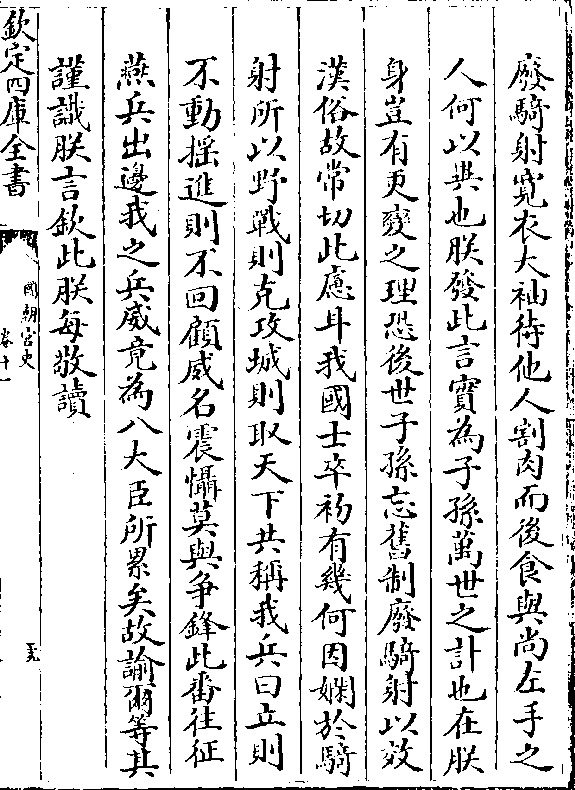 廢騎射寛衣大袖待他人割肉而後食與尚左手之
人何以異也朕發此言實為子孫萬世之計也在朕
身豈有更變之理恐後世子孫忘舊制廢騎射以效
漢俗故常切此慮耳我國士卒初有幾何因嫻於騎
射所以野戰則克攻城則取天下共稱我兵曰立則
不動揺進則不回顧威名震懾莫與争鋒此番往征
燕兵出邊我之兵威竟為八大臣所累矣故諭爾等其
謹識朕言欽此朕每敬讀
欽定四庫全書
國朝宫史
卷十一